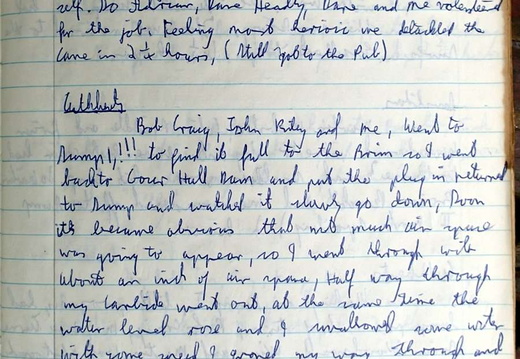 self. So Adrian, Dave Heady, Dave and me volunteered
for the job. Feeling most herioic we detackled the
cave in 2 1/4 hours, (Still got to the Pub)
Bob Craig, John Riley and me, Went to
Sump 1,!!! to find it full to the Brim so I went
back to Gour Hall Dam and put the plug in returned
to Sump and watched it slowly go down, Soon
it became obvious that not much air space
was going to appear, so I went through with
about an inch of air space, Half way through
my Carbide went out, at the same time the
water level rose and I swallowed some water
With some speed I groped my way through and